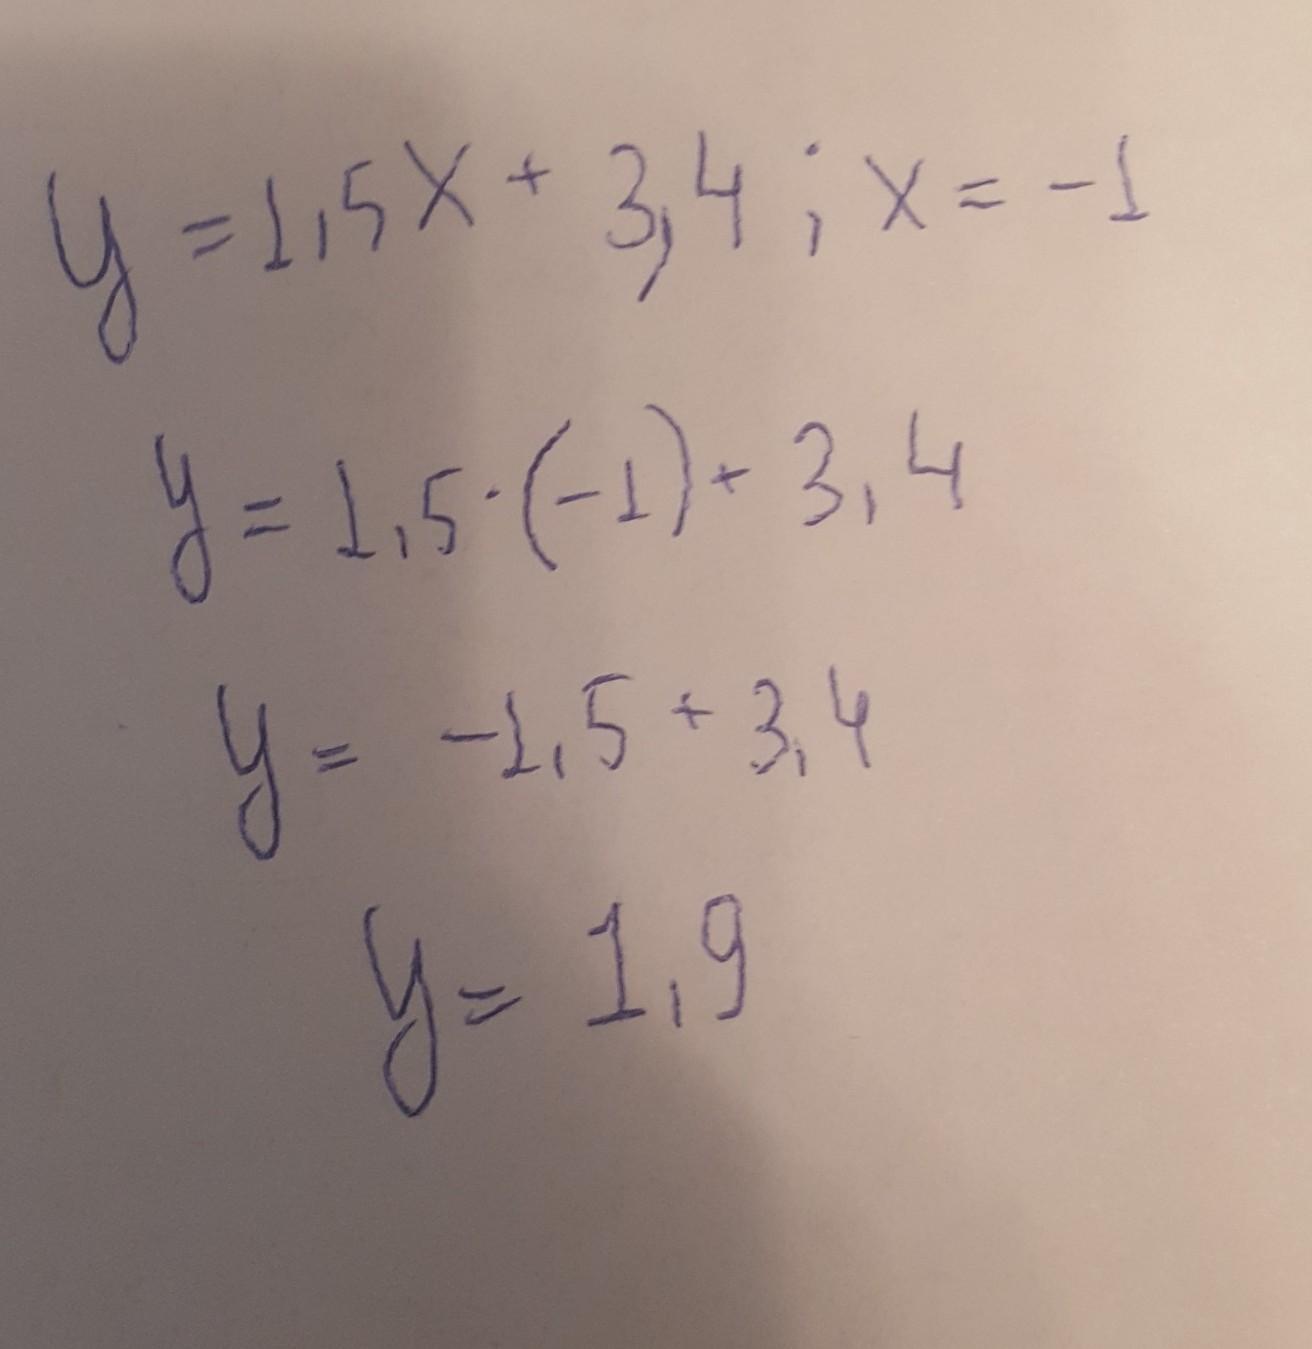 y = 1,5x + 3,4 ; x = -1
y = 1,5 · (-1) + 3,4
y = -1,5 + 3,4
y = 1,9